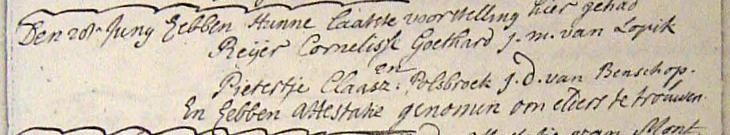 Den 28en Juny hebben Hunne laatste voorstelling hier gehad
Reijer Cornelisse Goethard j.m. van Lopik
en
Pietertje Claasz: Polsbroek j.d. van Benschop.
En hebben attestatie genomen om elders te trouwen.
van Mont